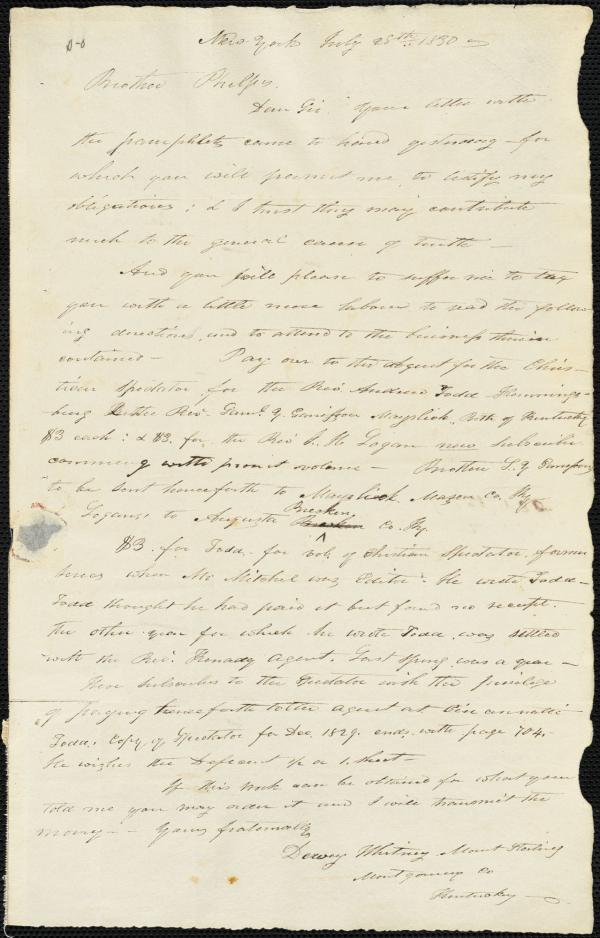 New York July 28th. 1830
Brother Phelps.
Dear Sir Your letter with
the pamphlets came to hand yesterday - for
which you will permit me to testify my
obligations: & I trust they may contribute
much to the general cause of truth -
And you will please to suffer me to tax
you with a little more labour to read the follow-
ing directions, and to attend to the business therein
contained - Pay over to the Agent for the Chris-
tian Spectator for the Rev. Andrew Todd Flemmings-
burg & the Rev. Saml. Y. Garrison Mayslick, Both of Kentucky
$3 each: & $3. for the Rev. Logan new subscriber
commencing with present volume - Brother S. Y. Garrison
to be sent henceforth to Mayslick Mason Co. Ky.
Bracken
Logans to Augusta Co. Ky.
$3. for Todd. for vol. of Christian Spectator, former
when Mr. Mitchel was Editor. He wrote Todd -
Todd thought he had paid it but found no receipt.
The other year for which he wrote Todd, was settled
with the Rev. Kennady agent. Last spring was a year -
subscribes to the Spectator with the privilege
of paying henceforth to the agent at Cincannatti -
Todd. Copy of Spectator for Dec. 1829. ends with page 704.
He wishes the Deficient p or 1. sheet -
If this work can be obtained for what you
told me you may order it and I will transmit the
money - - Yours fraternally
Dewey Whitney Mount Sterling
Montgomery Co
Kentucky